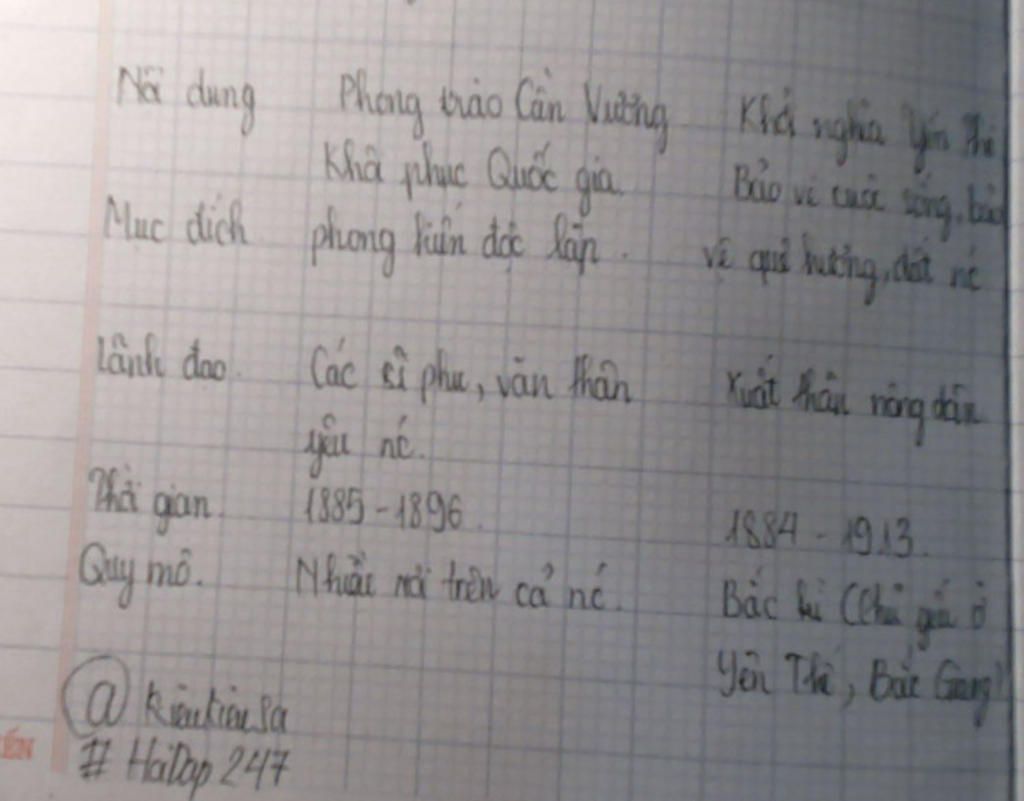 Nội dung Phong trào Cần Vương Khởi nghĩa Yên Thế
Khôi phục Quốc gia Bảo vệ cuộc sống, bảo
Mục đích phong kiến độc lập. vệ quê hương, đất nc
Lãnh đạo. Các sĩ phu, văn thân Xuất thân nông dân
yêu nc.
Thời gian. 1885-1896. 1884-1913.
Quy mô. Nhiều nơi trên cả nc. Bắc kì (Chủ yếu ở
Yên Thế, Bắc Giang)
@kieukieusa
# HoiDap 247